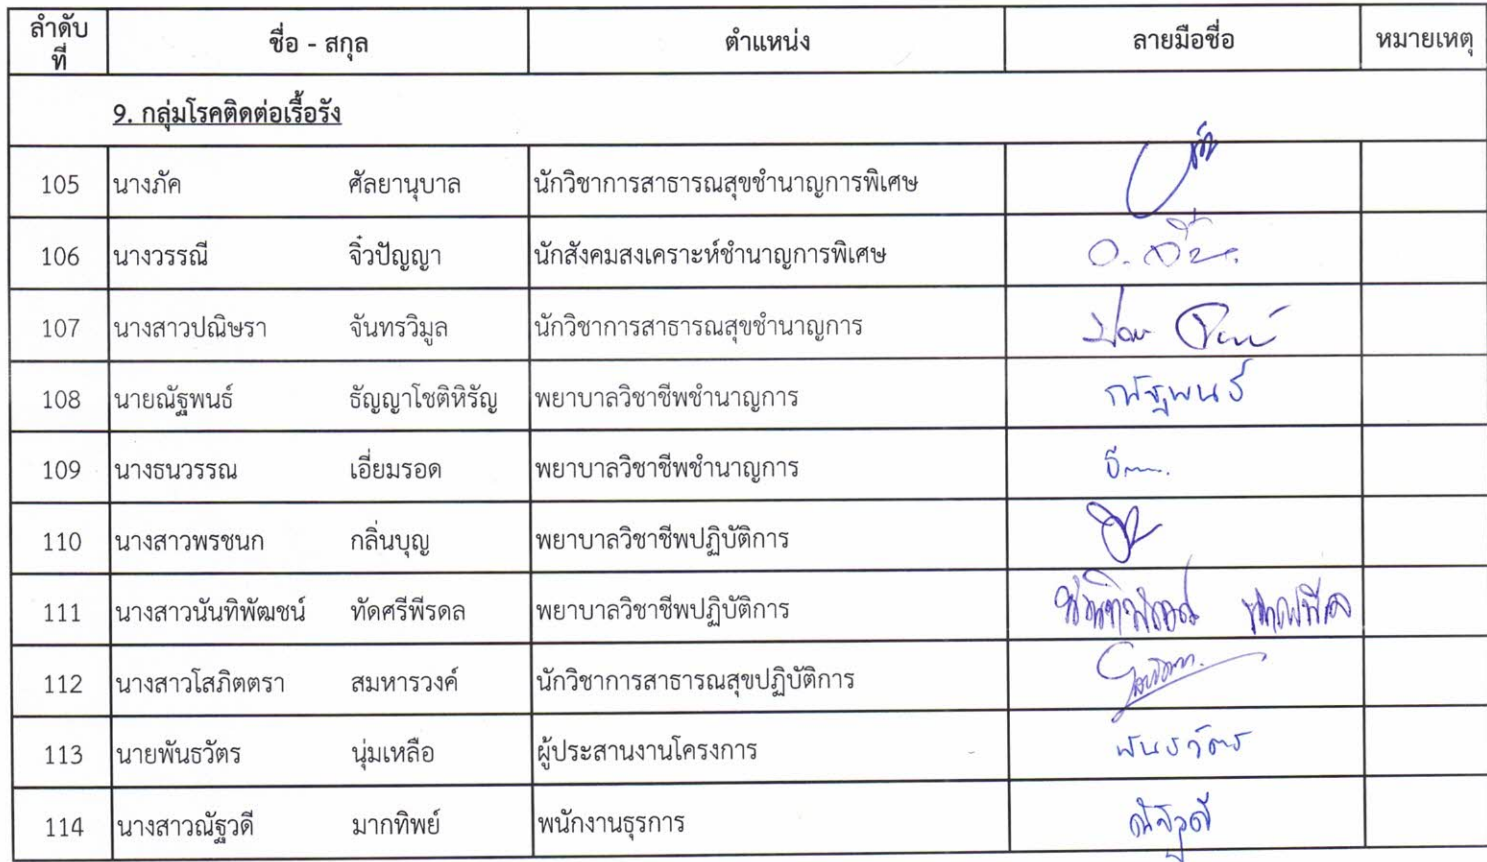 ลำดับที่ ชื่อ - สกุล ตำแหน่ง ลายมือชื่อ หมายเหตุ
9. กลุ่มโรคติดต่อเรื้อรัง
105 นางภัค ศัลยานุบาล นักวิชาการสาธารณสุขชำนาญการพิเศษ
106 นางวรรณี จิ๋วปัญญา นักสังคมสงเคราะห์ชำนาญการพิเศษ
107 นางสาวปณิษรา จันทรวิมูล นักวิชาการสาธารณสุขชำนาญการ
108 นายณัฐพนธ์ ธัญญาโชติหิรัญ พยาบาลวิชาชีพชำนาญการ ณัฐพนธ์
109 นางธนวรรณ เอี่ยมรอด พยาบาลวิชาชีพชำนาญการ
110 นางสาวพรชนก กลิ่นบุญ พยาบาลวิชาชีพปฏิบัติการ
111 นางสาวนันทิพัฒชน์ ทัดศรีพีรดล พยาบาลวิชาชีพปฏิบัติการ
112 นางสาวโสภิตตรา สมหารวงค์ นักวิชาการสาธารณสุขปฏิบัติการ
113 นายพันธวัตร นุ่มเหลือ ผู้ประสานงานโครงการ พันธวัตร
114 นางสาวณัฐวดี มากทิพย์ พนักงานธุรการ ณัฐวดี